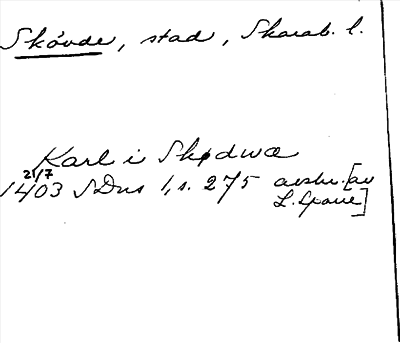 Skövde, stad, Skarab. l.
Karl i Skødwæ
21/7
1403 SDns 1, s. 275 avskr. [av
L. Sparre]